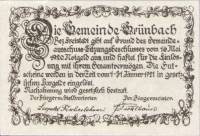 Die Gemeinde Grünbach
Bez. Freistadt gibt auf Grund des Gemeinde-
ausschuss-Sitzungsbeschlusses vom 16. Mai
1920 Notgeld aus, und haftet für die Einlös-
ung mit ihrem Gesamtvermögen. Die Gut-
scheine werden in der Zeit vom 1.-31. Jänner 1921 in gesetz-
lichem Bargelde eingelöst.
Nachahmung wird gesetzlich bestraft.
Der Bürgermst. Stellvertreter: Der Bürgermeister: